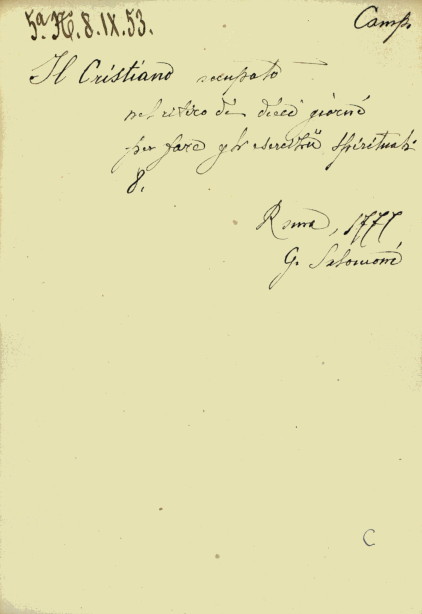 5ª H. 8. IX. 53.
Camp.
Il Cristiano occupato
nel ritiro di dieci giorni
per fare gli esercitii spirituali
8.
Roma, 1777
G. Salomoni
C